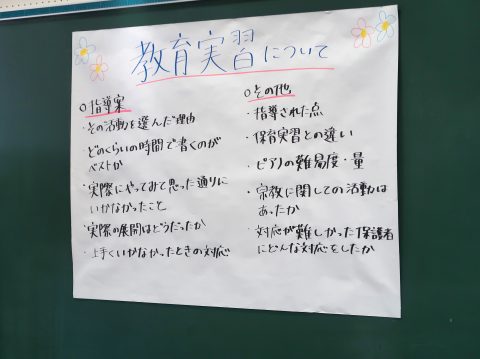 教育実習について
○指導案
・その活動を選んだ理由
・どのくらいの時間で書くのが
ベストか
・実際にやってみて思った通りに
いかなかったこと
・実際の展開はどうだったか
・上手くいかなかったときの対応
○その他
・指導された点
・保育実習との違い
・ピアノの難易度・量
・宗教に関しての活動は
あったか
・対応が難しかった保護者
にどんな対応をしたか